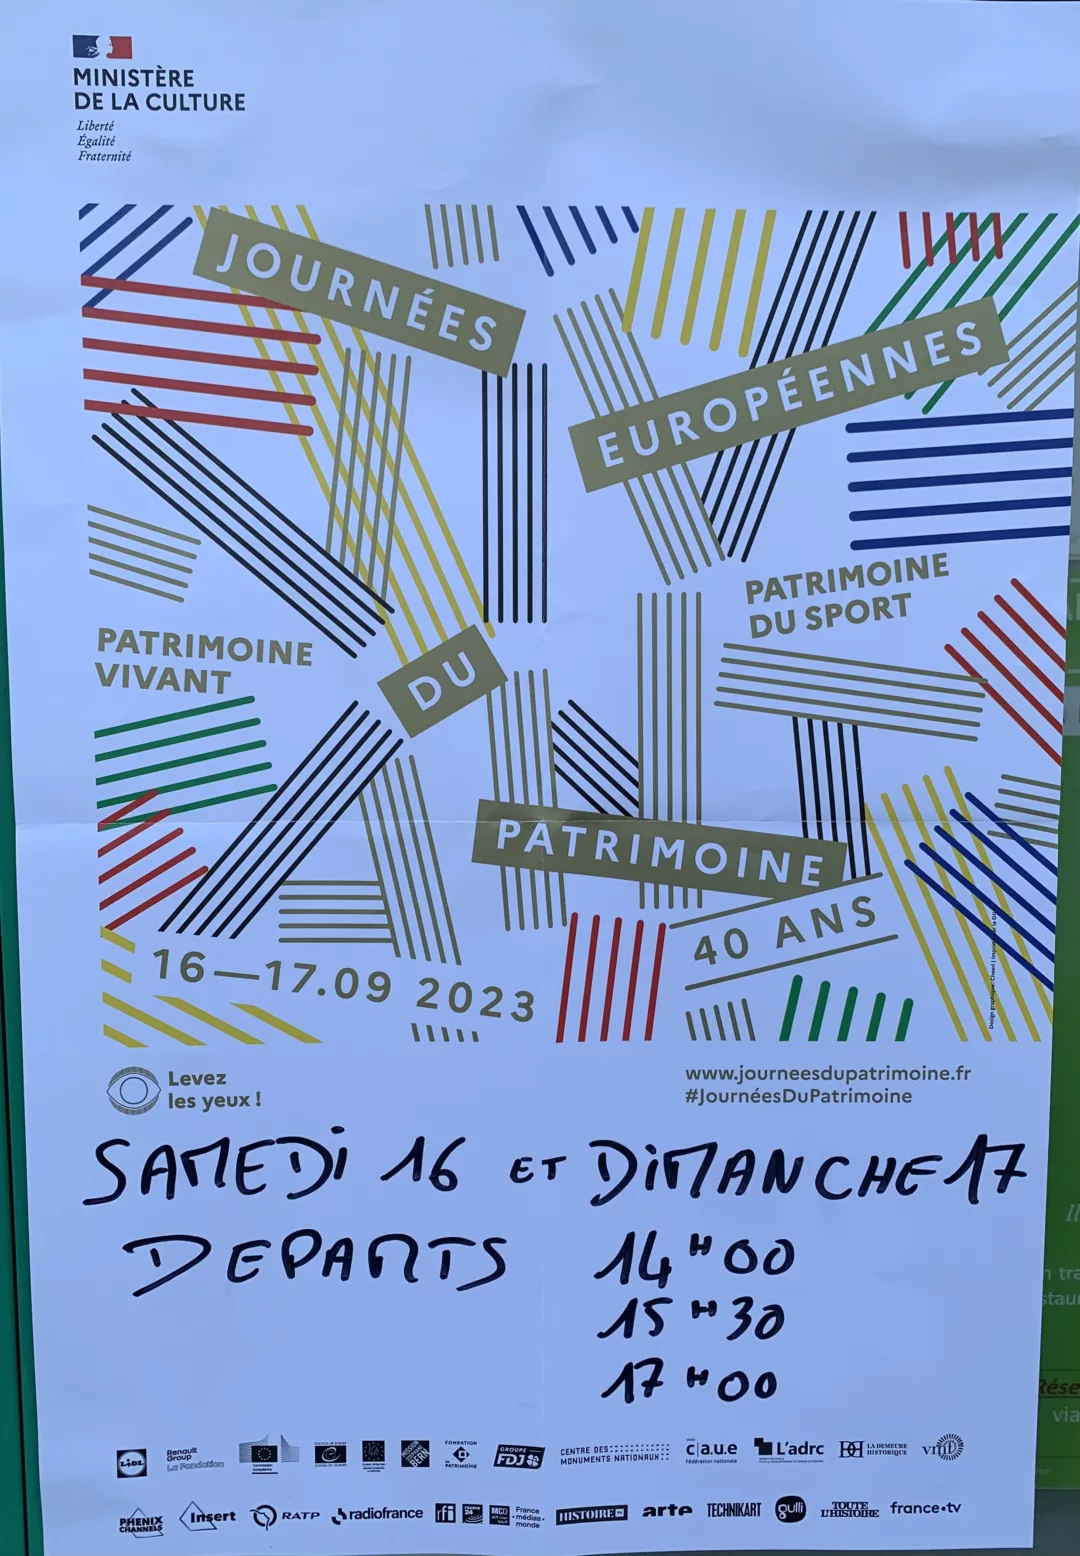 MINISTÈRE
DE LA CULTURE
Liberté
Égalité
Fraternité
JOURNÉES
EUROPÉENNES
DU
PATRIMOINE
PATRIMOINE
DU SPORT
PATRIMOINE
VIVANT
40 ANS
16—17.09 2023
Levez
les yeux !
www.journeesdupatrimoine.fr
#JournéesDuPatrimoine
SAMEDI 16 ET DIMANCHE 17
DEPARTS 14H00
15H30
17H00
LIDL
Renault
Group
La Fondation
FONDATION
DU PATRIMOINE
GROUPE
FDJ
CENTRE DES
MONUMENTS NATIONAUX
c|a.u.e
Fédération nationale
L'adrc
LA DEMEURE
HISTORIQUE
vmf
PHENIX
CHANNELS
Insert
RATP
radiofrance
rfi
FRANCE
24
MCD
France
médias
monde
HISTOIRE TV
arte
TECHNIKART
gulli
TOUTE
L'HISTOIRE
france•tv
Il
n tra
staur
Rése
via